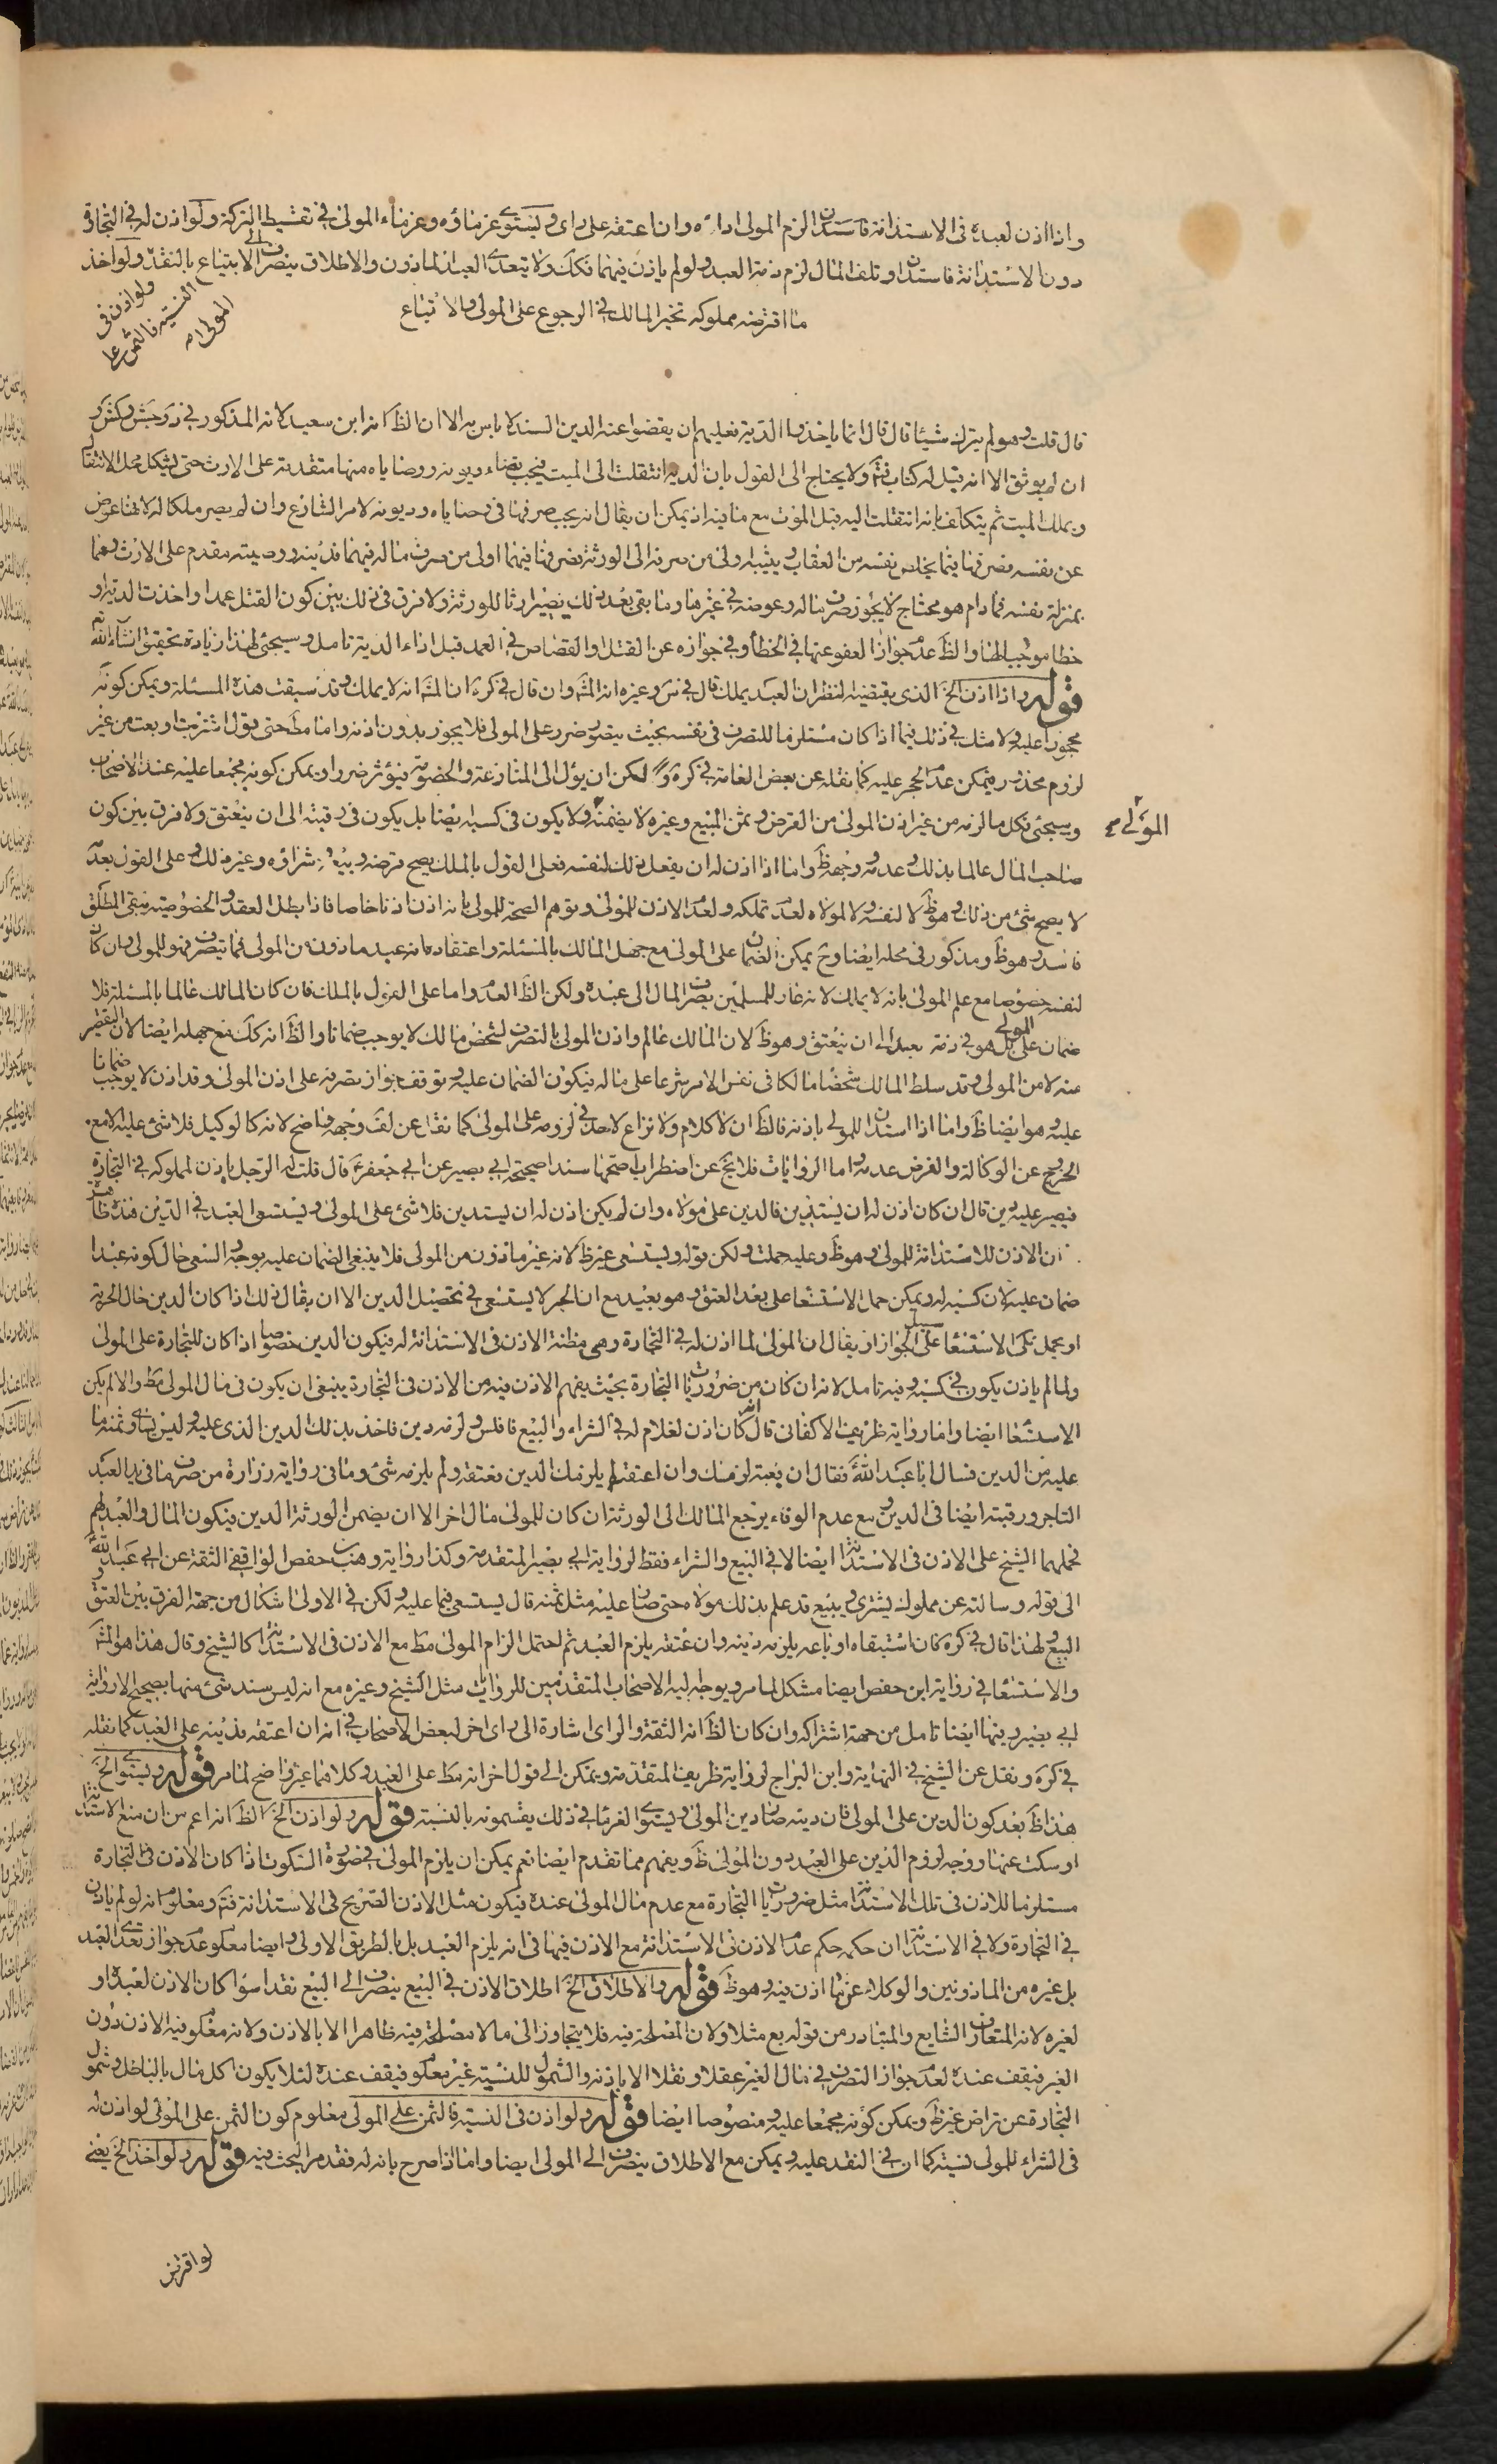 واذا اذن لعبده فى الاستدانة فاستدان الزم المولى اداءه وان اعتقه على راى ويستوى غرماؤه وغرماء المولى فى تقسيط التركة ولو اذن له فى التجارة
دون الاستدانة فاستدان وتلف المال لزم ذمة العبد ولو لم ياذن فيهما فكك ولا يتعدى العبد الماذون والاطلاق ينصرف الى الابتياع بالنقد ولو اخذ
ولو اذن فى
النسيئة فالثمن على
المولى
ما اقترضه مملوكه تخير المالك فى الرجوع على المولى والاتباع
قال قلت وهو لم يترك شيئا قال قال انما ياخذوا الدية فعليهم ان يقضوا عنه الدين السند لا باس به الا ان الظ انه ابن سعيد لانه المذكور فى
ان لم يوثق الا انه قيل له كتاب فتم ولا يحتاج الى القول بان الدية انتقلت الى الميت فيجب قضاء ديونه ووصاياه منها متقدمة على الارث حتى يشكل محل الانتقال
ويملك الميت ثم يتكلف بانه انتقلت اليه قبل الموت مع ما فيه اذ يمكن ان يقال انه يجب صرفها فى وصاياه وديونه لامر الشارع وان لم يصر ملكا له لانها عوض
عن نفسه فصرفها فيما يخلص نفسه من العقاب ويثيبه اولى من صرفه الى الورثة فصرفها فيهما اولى من صرف ماله فيهما فدينه ووصيته مقدم على الارث وهما
بمنزلة نفسه فما دام هو محتاج لا يجوز صرف ماله وعوضه فى غيرها وما بقى بعد ذلك يصير ارثا للورثة ولا فرق فى ذلك بين كون القتل عمدا واخذت الدية او
خطا موجبا لها والظ عدم جواز العفو عنها فى الخطأ وفى جوازه عن القتل والقصاص فى العمد قبل اداء الدية تامل وسيجئ لهذا زيادة تحقيق انشاء الله
قوله واذا اذن الخ الذى يقتضيه النظر ان العبد يملك قال فى س وغيره انه المش وان قال فى كره ان المش انه لا يملك وقد سبقت هذه المسئلة ويمكن كونه
محجورا عليه ولا مثل فى ذلك فيما اذا كان مستلزما للتصرف فى نفسه بحيث يتصور ضرر على المولى فلا يجوز بدون اذنه واما مط حتى بقول اشتريت او بعت من غير
لزوم محذور فيمكن عدم الحجر عليه كما نقله عن بعض العامة فى كره لكن ان يؤل الى المنازعة والخصومة فيؤثر ضررا ويمكن كونه مجمعا عليه عند الاصحاب
المولى
وسيجئ فكل ما لزمه من غير اذن المولى من القرض وثمن المبيع وغيره لا يضمنه ولا يكون فى كسبه ايضا بل يكون فى رقبته الى ان ينعتق ولا فرق بين كون
صاحب المال عالما بذلك وعدمه وجهه ظ واما اذا اذن له ان يفعل ذلك لنفسه فعلى القول بالملك يصح قرضه وبيعه وشراؤه وغير ذلك وعلى القول بعدمه
لا يصح شئ من ذلك وهو ظ لا لنفسه ولا لمولاه لعدم تملكه ولعدم الاذن للمولى وتوهم الصحة للمولى بانه اذن اذنا خاصا فاذا بطل العقد والخصوصية بقى المطلق
فاسد وهو ظ ومذكور فى محله ايضا وح يمكن الضمان على المولى مع جهل المالك بالمسئلة واعتقاده انه عبد ماذون من المولى فما يتصرف فهو للمولى وان كان
لنفسه خصوصا مع علم المولى بانه لا يملك لانه غار للمسلمين بصرف المال الى عبده ولكن الظ العدم واما على القول بالملك فان كان المالك عالما بالمسئلة فلا
ضمان على المولى بل هو فى ذمة عبده الى ان ينعتق وهو ظ لان المالك عالم واذن المولى بالتصرف لشخص مالك لا يوجب ضمانا والظ انه كك مع جهله ايضا لان التقصير
عنه لا من المولى وقد سلط المالك شخصا مالكا فى نفس الامر شرعا على ماله فيكون الضمان عليه وتوقف جواز تصرفه على اذن المولى وقد اذن لا يوجب ضمانا
عليه وهو ايضا ظ واما اذا استدان للمولى باذنه فالظ ان لا كلام ولا نزاع لاحد فى لزومه على المولى كما نقل عن لف وجهه واضح لانه كالوكيل فلا شئ عليه الا مع
الخروج عن الوكالة والفرض عدمه واما الروايات فلا يخ عن اضطراب اصحها سندا صحيحة ابى بصير عن ابى جعفر ع قال قلت له الرجل ياذن لمملوكه فى التجارة
فيصير عليه دين قال ان كان اذن له ان يستدين فالدين على مولاه وان لم يكن اذن له ان يستدين فلا شئ على المولى ويستسعى العبد فى الدين فهذه ظاهرة
ان الاذن للاستدانة للمولى وهو ظ وعليه حملت ولكن قوله ويستسعى غير ظ لانه غير ماذون من المولى فلا ينبغى الضمان عليه بوجه والسعى حال كونه عبدا
ضمان عليه لان كسبه له ويمكن حمل الاستسعاء على بعد العتق وهو بعيد مع ان الحر لا يستسعى فى تحصيل الدين الا ان يقال ذلك اذا كان الدين حال الحرية
او يحمل تلك الاستسعاء على سبيل الجواز او يقال ان المولى لما اذن له فى التجارة وهى مظنة الاذن فى الاستدانة له فيكون الدين خصوصا اذا كان للتجارة على المولى
ولما لم ياذن يكون فى كسبه وفيه تامل لانه ان كان من ضروريات التجارة بحيث يفهم الاذن فيه من الاذن فى التجارة ينبغى ان يكون فى مال المولى مط والا لم يكن
الاستسعاء ايضا واما رواية ظريف الاكفانى قال انه كان اذن لغلام له فى الشراء والبيع فافلس ولزمه دين فاخذ بذلك الدين الذى عليه وليس يساوى ثمنه ما
عليه من الدين فسال ابا عبد الله ع فقال ان بعته لزمك وان اعتقته لم يلزمك الدين فعتقه ولم يلزمه شئ وما فى رواية زرارة من صرف ما فى يد العبد
التاجر ورقبته ايضا فى الدين مع عدم الوفاء يرجع المالك الى الورثة ان كان للمولى مال اخر الا ان يضمن الورثة الدين فيكون المال والعبد لهم
فحملهما الشيخ على الاذن فى الاستدانة ايضا لا فى البيع والشراء فقط لرواية ابى بصير المتقدمة وكذا رواية وهيب بن حفص الواقفى الثقة عن ابى عبد الله ع
الى قوله وسالته عن مملوك يشترى ويبيع قد علم بذلك مولاه حتى صار عليه مثل ثمنه قال يستسعى فيما عليه ولكن فى الاولى اشكال من جهة الفرق بين العتق
البيع ولهذا قال فى كره كان استبقاه او باعه يلزمه دينه وان عتقه يلزم العبد ثم احتمل الزام المولى مط مع الاذن فى الاستدانة كالشيخ وقال هذا هو المش
والاستسعاء فى رواية ابن حفص ايضا مشكل لما مر ويوجه اليه الاصحاب المتقدمين للروايات مثل الشيخ وغيره مع انه ليس سند شئ منها بصحيح الا رواية
ابى بصير وفيها ايضا تامل من جهة اشتراكه وان كان الظ انه الثقة والراى اشارة الى راى اخر لبعض الاصحاب فى انه ان اعتقه فدينه على العبد كما نقله
فى كره ونقل عن الشيخ فى النهاية وابن البراج لرواية ظريف المتقدمة ويمكن الى قول اخر انه مط على العبد وكلاهما غير واضح لما مر قوله ويستوى الخ
هذا ظ بعد كون الدين على المولى فان دينه صار دين المولى ويستوى الغرماء فى ذلك يقسمونه بالنسبة قوله ولو اذن الخ الظ انه اعم من ان منع الاستدانة
او سكت عنها ووجه لزوم الدين على العبد دون المولى ظ ويفهم مما تقدم ايضا نعم يمكن ان يلزم المولى فى صورة السكوت اذا كان الاذن فى التجارة
مستلزما للاذن فى تلك الاستدانة مثل ضروريات التجارة مع عدم مال المولى عنده فيكون مثل الاذن الصريح فى الاستدانة فتم ومعلوم انه لو لم ياذن
فى التجارة ولا فى الاستدانة ان حكمه حكم عدم الاذن فى الاستدانة مع الاذن فيها فى انه يلزم العبد بل بالطريق الاولى وايضا معلوم عدم جواز تعدى العبد
بل غيره من الماذونين والوكلاء عن ما اذن فيه وهو ظ قوله والاطلاق الخ اطلاق الاذن فى البيع ينصرف الى البيع نقدا سواء كان الاذن لعبده او
لغيره لانه المتعارف الشايع والمتبادر من قوله بع مثلا ولان المصلحة فيه فلا يتجاوز الى ما لا مصلحة فيه ظاهرا الا بالاذن ولانه معلوم فيه الاذن دون
الغير فيقف عنده لعدم جواز التصرف فى مال الغير عقلا ونقلا الا باذنه والشمول للنسيئة غير معلوم فيقف عنده لئلا يكون اكل مال بالباطل وشمول
التجارة عن تراض غير ظ ويمكن كونه مجمعا عليه ومنصوصا ايضا قوله ولو اذن فى النسيئة فالثمن على المولى معلوم كون الثمن على المولى لو اذن له
فى الشراء للمولى نسيئة كما ان فى النقد عليه ويمكن مع الاطلاق ينصرف الى المولى ايضا واما اذا صرح بانه له فقد مر البحث فيه قوله ولو اخذ الخ يعنى
لو اقترض